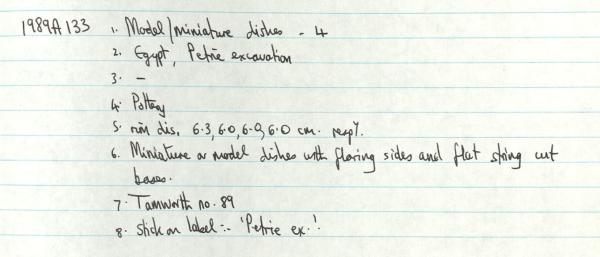 1989A133 1. Model/miniature dishes - 4
2. Egypt, Petrie excavation
3. -
4. Pottery
5. rim dis. 6.3, 6.0, 6.0, 6.0 cm. resp'.
6. Miniature or model dishes with flaring sides and flat string cut
bases.
7. Tamworth no. 89
8. Stick on label:- 'Petrie ex.'.